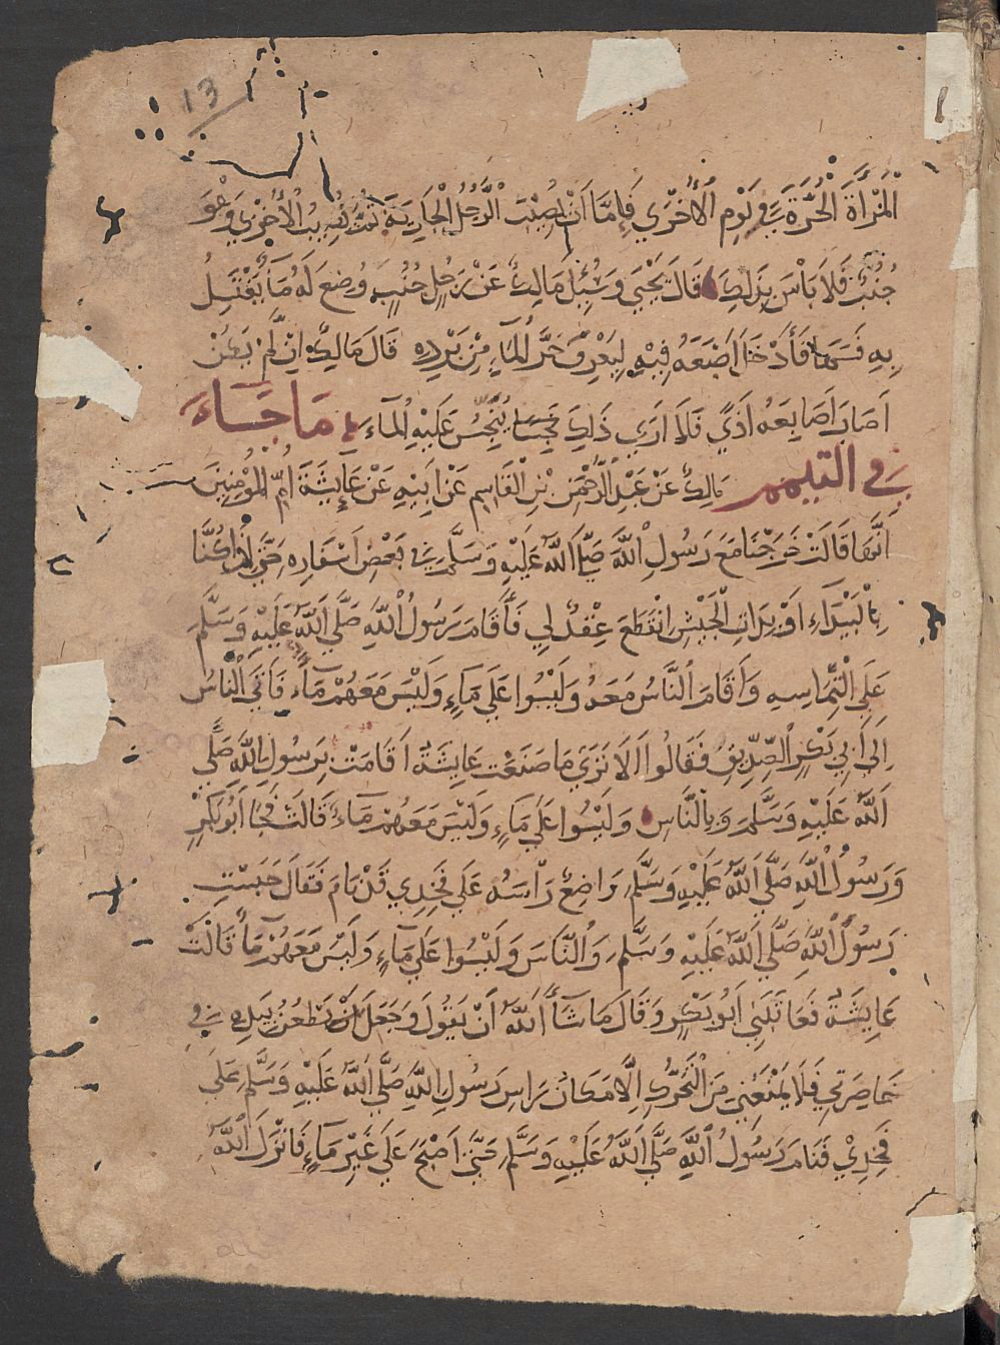 13
الْمَرْأَةَ الْحُرَّةَ فِي يَوْمِ الْأُخْرَي فَإِمَّا اَنْ يُصِيْبَ الْرَّجُلُ الْجَارِيَةَ ثُمَّ يُصِيْبُ الْأُخْرَي وَهُوَ
جُنُبٌ فَلَا بَاْسَ بِذَلِكَ قَالَ يَحْيَي وَسُئِلَ مَالِكٌ عَنْ رَجُلٍ جُنُبٍ وُضِعَ لَهُ مَآءٌ يَغْتَسِلُ
بِهِ فَسَهَا فَأَدْخَلَ اِصْبَعَهُ فِيْهِ لِيَعْرِفَ حَرَّ الْمَآءِ مِنْ بَرْدِهِ قَالَ مَالِكٌ اِنْ لَمْ يَكُنْ
اَصَابَ اَصَابِعَهُ اَذًي فَلَا اَرَي ذَلِكَ يُنَجِّسُ عَلَيْهِ الْمَآءَ مَا جَآءَ
فِي التيمم مَالِكٌ عَنْ عَبْدِ الْرَّحْمَنِ بْنِ الْقَاسِمِ عَنْ اَبِيْهِ عَنْ عَايِشَةَ اُمِّ الْمُؤْمِنِيْنَ
اَنَّهَا قَالَتْ خَرَجْنَا مَعَ رَسُولِ اللَّهِ صَلَّي اللَّهُ عَلَيْهِ وَسَلَّمَ فِي بَعْضِ اَسْفَارِهِ حَتَّي اِذَا كُنَّا
بِالْبَيْدَآءِ اَوْ بِذَاتِ الْجَيْشِ انْقَطَعَ عِقْدٌ لِي فَأَقَامَ رَسُولُ اللَّهِ صَلَّي اللَّهُ عَلَيْهِ وَسَلَّمَ
عَلَي الْتِمَاسِهِ وَأَقَامَ الْنَّاسُ مَعَهُ وَلَيْسُوا عَلَي مَآءٍ وَلَيْسَ مَعَهُمْ مَآءٌ فَأَتَي الْنَّاسُ
اِلَي اَبِي بَكْرٍ الْصِّدِّيقِ فَقَالُوا اَلَا تَرَي مَا صَنَعَتْ عَايِشَةُ اَقَامَتْ بِرَسُولِ اللَّهِ صَلَّي
اللَّهُ عَلَيْهِ وَسَلَّمَ وَبِالْنَّاسِ وَلَيْسُوا عَلَي مَآءٍ وَلَيْسَ مَعَهُمْ مَآءٌ قَالَتْ فَجَآ اَبُو بَكْرٍ
وَرَسُولُ اللَّهِ صَلَّي اللَّهُ عَلَيْهِ وَسَلَّمَ وَاضِعٌ رَاْسَهُ عَلَي فَخِذِي قَدْ نَامَ فَقَالَ حَبَسْتِ
رَسُولَ اللَّهِ صَلَّي اللَّهُ عَلَيْهِ وَسَلَّمَ وَالْنَّاسَ وَلَيْسُوا عَلَي مَآءٍ وَلَيْسَ مَعَهُمْ مَآءٌ قَالَتْ
عَايِشَةُ فَعَاتَبَنِي اَبُو بَكْرٍ وَقَالَ مَا شَآءَ اللَّهُ اَنْ يَقُولَ وَجَعَلَ يَطْعُنُ بِيَدِهِ فِي
خَاصِرَتِي فَلَا يَمْنَعُنِي مِنَ الْتَّحَرُّكِ اِلَّا مَكَانُ رَاسِ رَسُولِ اللَّهِ صَلَّي اللَّهُ عَلَيْهِ وَسَلَّمَ عَلَي
فَخِذِيْ فَنَامَ رَسُولُ اللَّهِ صَلَّي اللَّهُ عَلَيْهِ وَسَلَّمَ حَتَّي اَصْبَحَ عَلَي غَيْرِ مَآءٍ فَانْزَلَ اللَّهُ